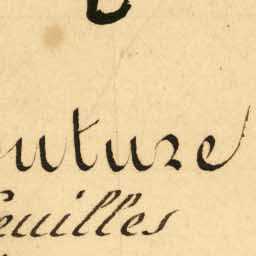 outure
feuilles